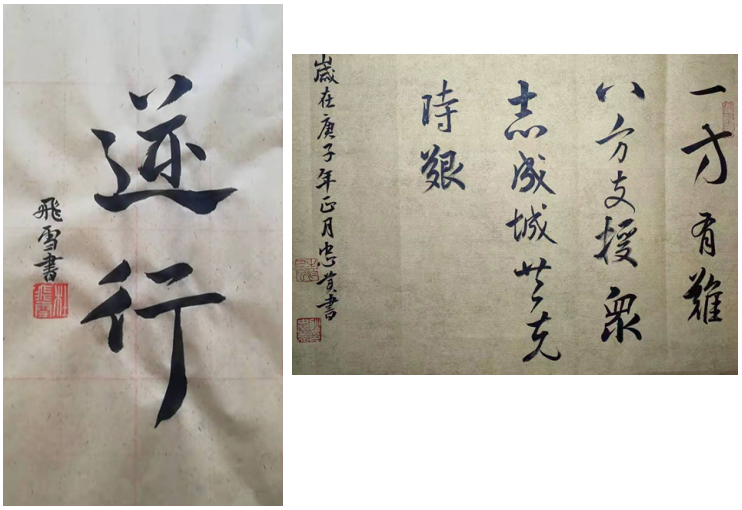 逆行
飛雪書
一方有難
八方支授衆
志成城共克
時艱
歲在庚子年正月忠貴書